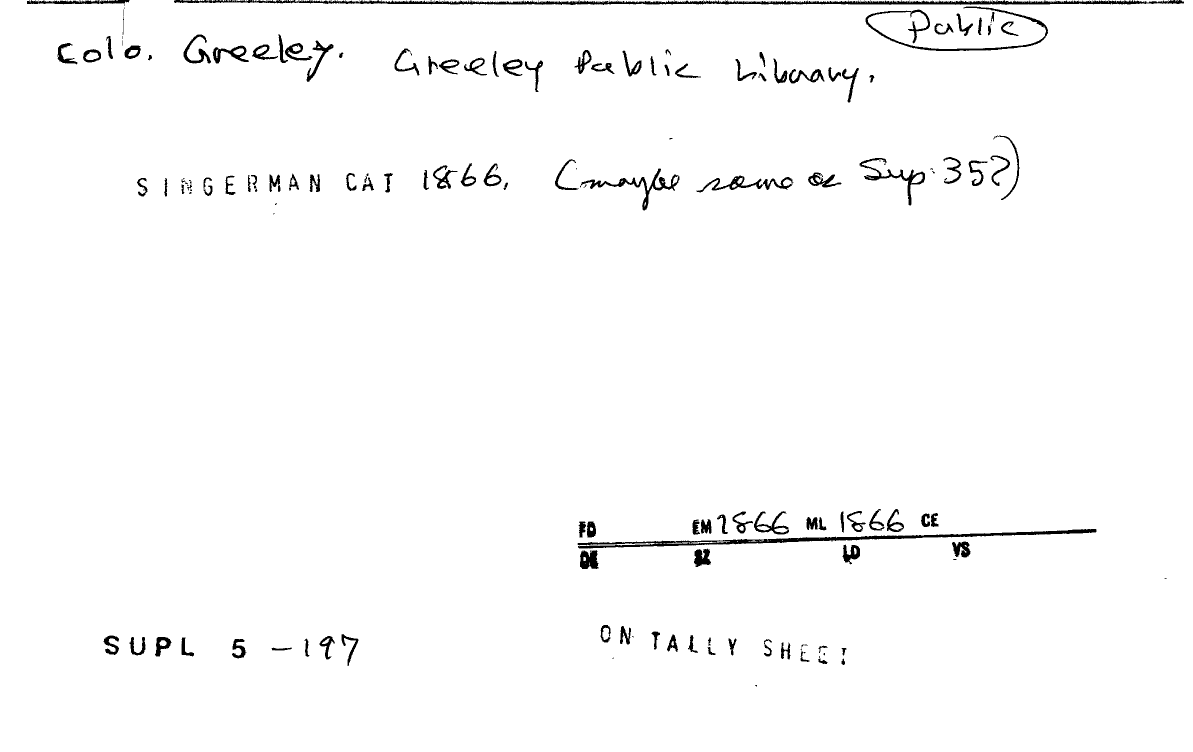 Public
Colo. Greeley. Greeley Public Library.
SINGERMAN CAT 1866. (maybe same as Sup. 35?)
FD EM 1866 ML 1866 CE
DE SZ LD VS
SUPL 5 -197
ON TALLY SHEET